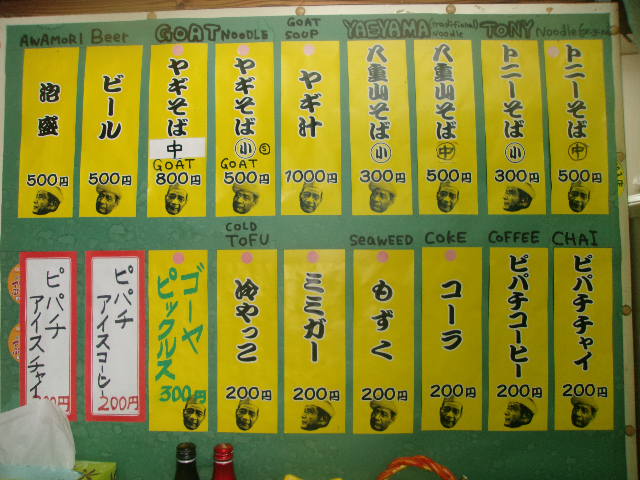 AWAMORI
泡盛
500円
Beer
ビール
500円
GOAT NOODLE
ヤギそば
中
GOAT
800円
ヤギそば
小 S
GOAT
500円
GOAT
SOUP
ヤギ汁
1000円
YAEYAMA (traditional)
Noodle
八重山そば
小
300円
八重山そば
中
500円
TONY Noodle
トニーそば
小
300円
トニーそば
中
500円
ピパチ
アイスチャイ
200円
ピパチ
アイスコーヒー
200円
ゴーヤ
ピックルス
300円
COLD
TOFU
冷やっこ
200円
ミミガー
200円
SEAWEED
もずく
200円
COKE
コーラ
200円
COFFEE
ピパチコーヒー
200円
CHAI
ピパチチャイ
200円